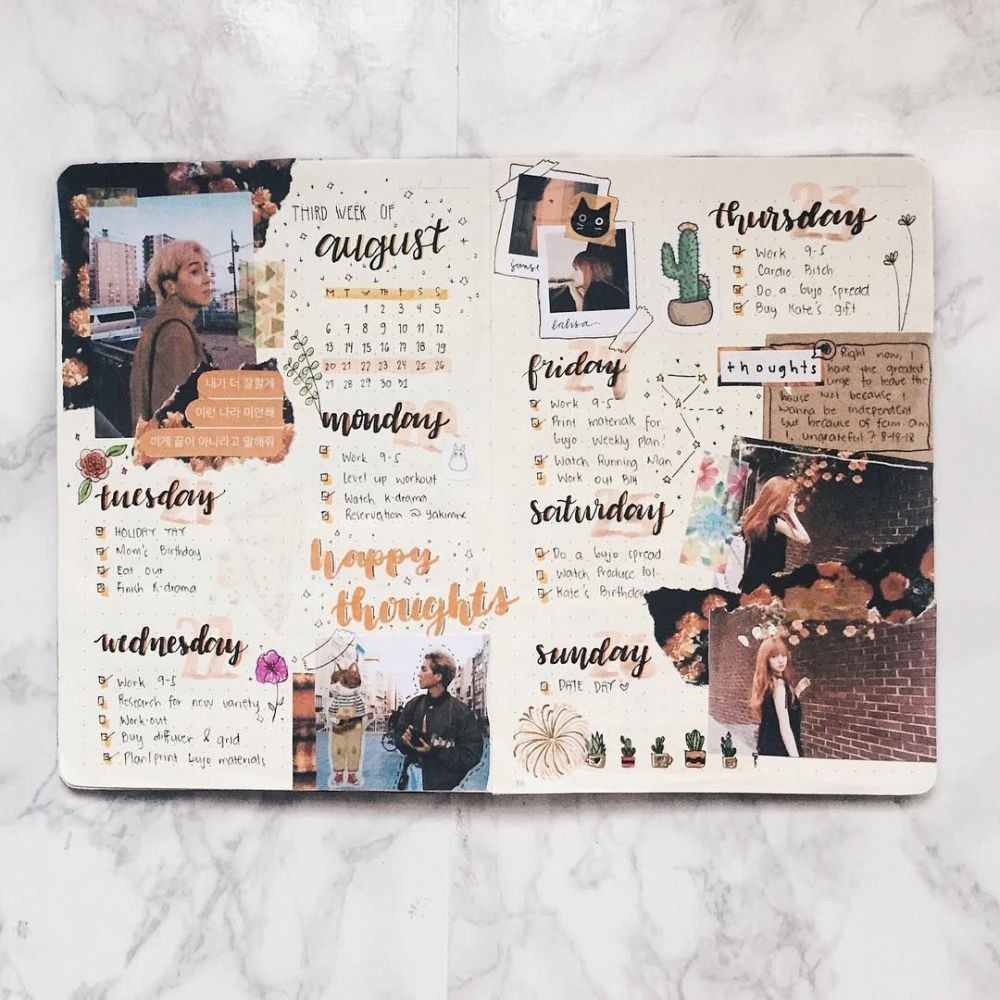 THIRD WEEK OF
august
M T W TH F S S
1 2 3 4 5
6 7 8 9 10 11 12
13 14 15 16 17 18 19
20 21 22 23 24 25 26
27 28 29 30 31
내가 더 잘할게
이런 나라 미안해
이게 끝이 아니라고 말해줘
monday
20
Work 9-5
Level up workout
Watch K-drama
Reservation @ Yakimix
tuesday
21
HOLIDAY YAY
Mom's Birthday
Eat out
Finish K-drama
wednesday
22
Work 9-5
Research for new variety
Work-out
Buy diffuser & grid
Plan/print bujo materials
happy
thoughts
thursday
23
Work 9-5
Cardio, Bitch
Do a bujo spread
Buy Kate's gift
friday
Work 9-5
Print materials for
bujo. Weekly plan!
Watch Running Man
Work out Bih
thoughts
Right now, I
have the greatest
urge to leave the
house not because I
wanna be independent
but because of fam. Am
I ungrateful? 8-18-18
saturday
25
Do a bujo spread
Watch Produce 101
Kate's Birthday
sunday
26
DATE DAY ♡
36